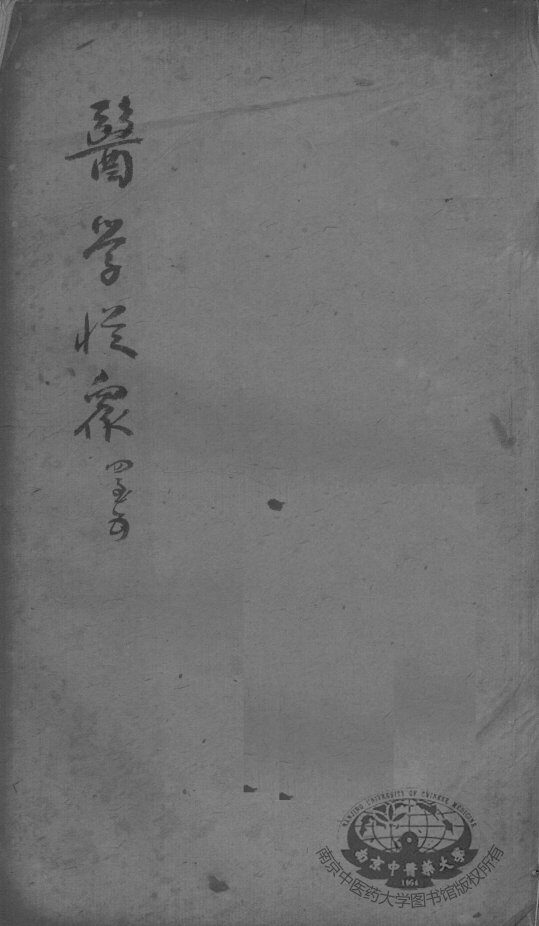 醫学悦衆 四至五
NANJING UNIVERSITY OF CHINESE MEDICINE
南京中醫藥大學
1954
南京中医药大学图书馆版权所有